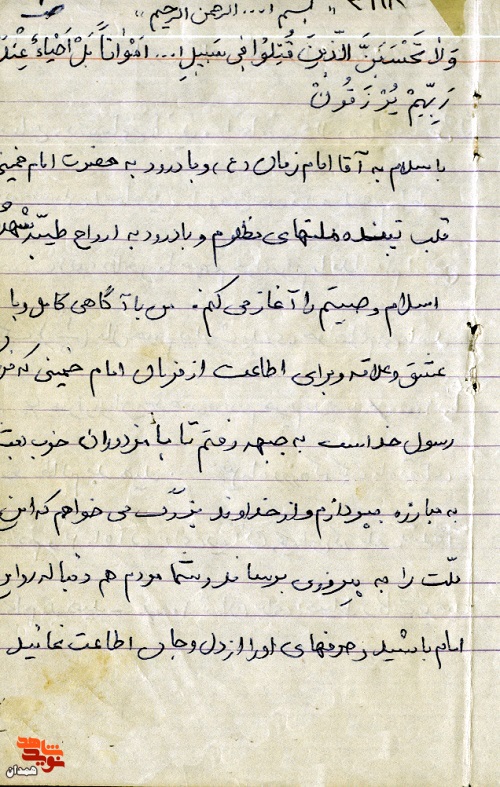 ۳۶۱۱۸
"بسم ا... الرحمن الرحیم"
وَلا تَحْسَبَنَّ الَّذینَ قُتِلُوا فِی سَبیلِ ا... اَمْواتاً بَلْ اَحْیاءٌ عِنْدَ
رَبِّهِمْ یُرْزَقُونْ
با سلام به آقا امام زمان (عج) و با درود به حضرت امام خمینی
قلب تپنده ملتهای مظلوم و با درود به ارواح طیبّه شهدا
اسلام وصیتم را آغاز می کنم. من با آگاهی کامل و با
عشق و علاقه و برای اطاعت از فرمان امام خمینی که
رسول خداست به جبهه رفتم تا با مزدوران حزب بعث
به مبارزه بپردازم و از خداوند بزرگ می خواهم که این
ملّت را به پیروزی برساند و شما مردم هم دنباله رو این
امام باشید و حرفهای او را از دل و جان اطاعت نمائید
نوید شاهد
همدان